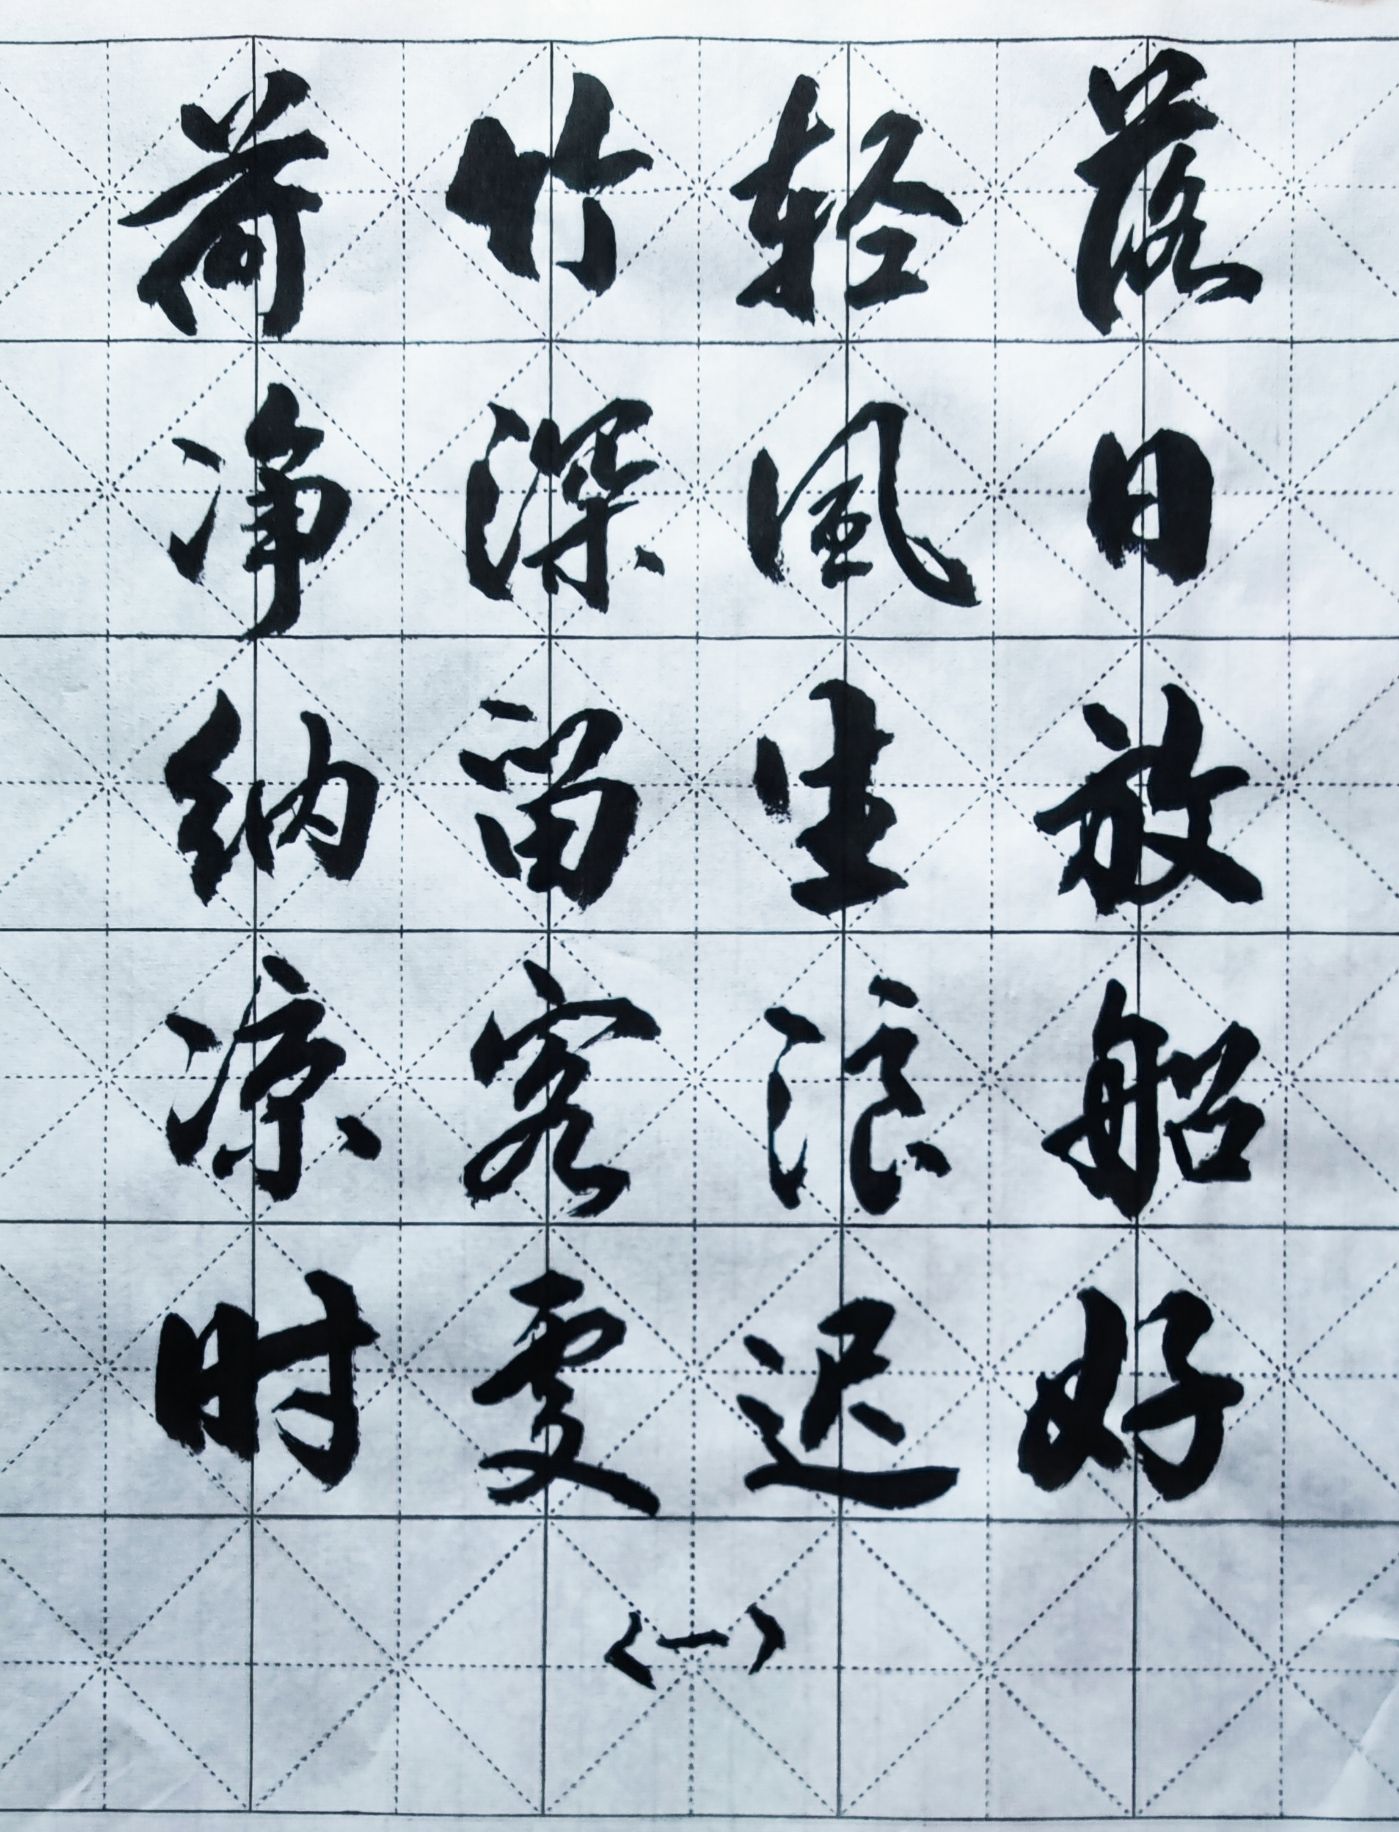 落日放船好
轻風生浪迟
竹深留客處
荷净纳凉时
〈一〉